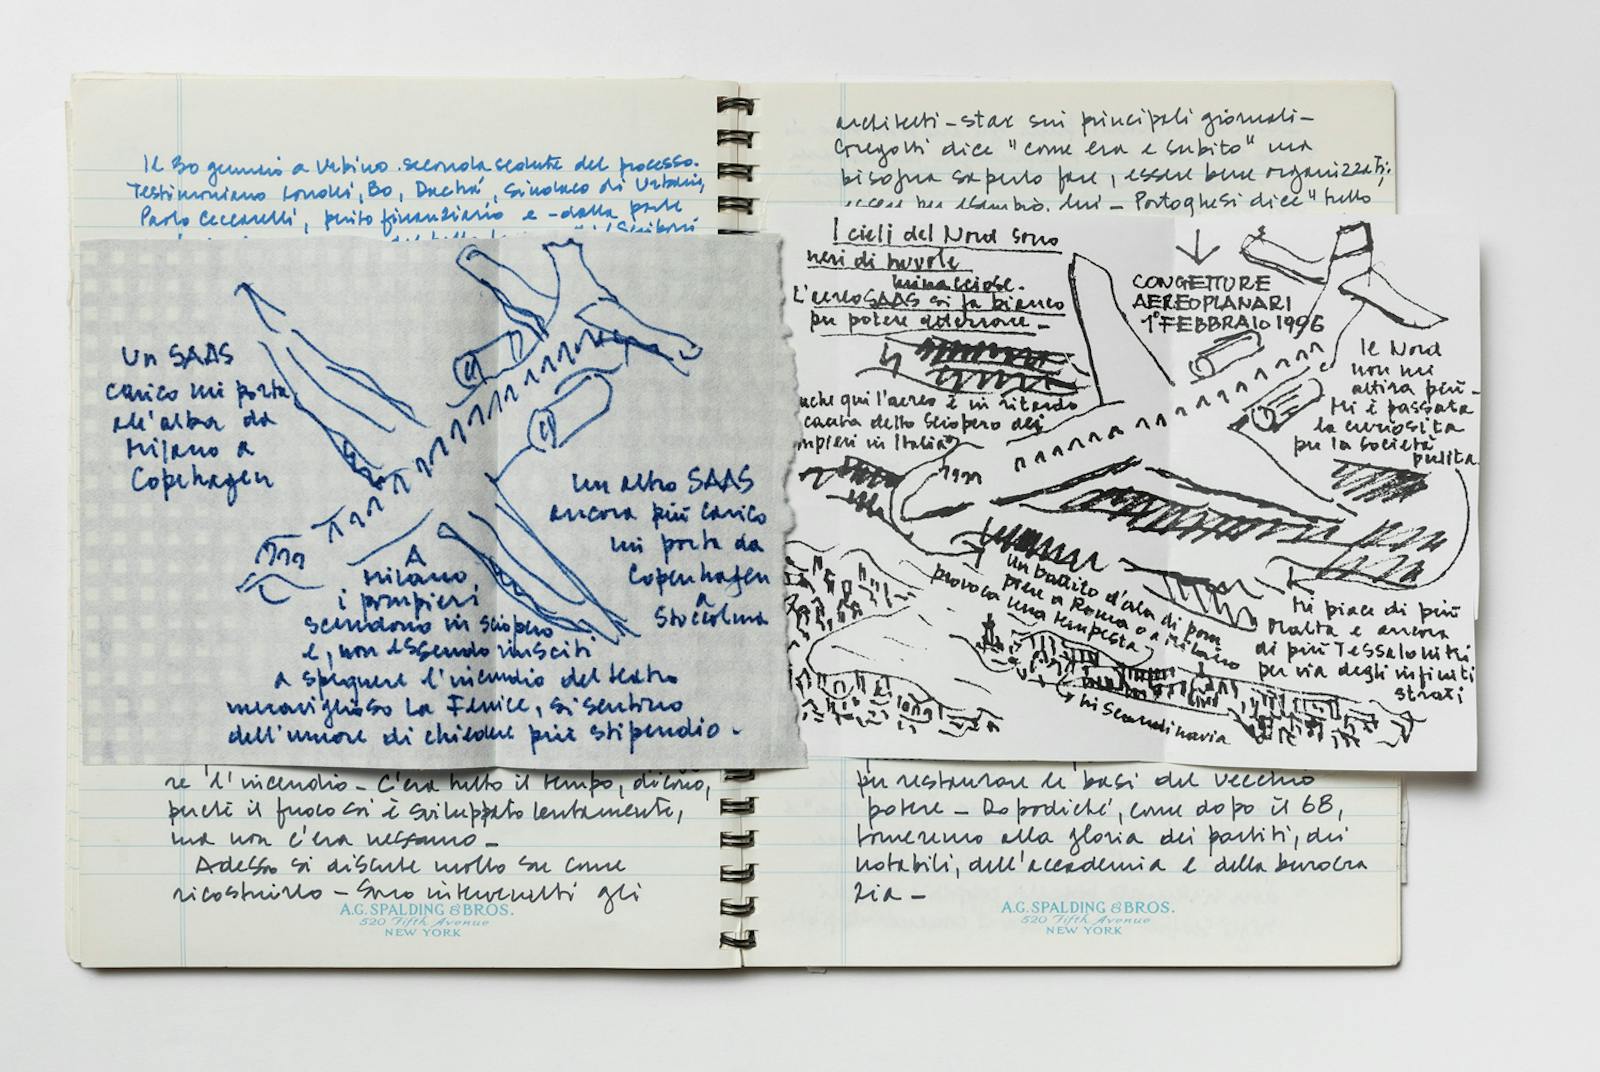 Il 30 gennaio a Urbino seconda seduta del processo.
Testimoniano Londei, Bo, Sindaco di Urbino,
Paolo Ceccarelli, perito finanziario e - dalla parte
Un SAAS
carico mi porta
all'alba da
Milano a
Copenhagen
un altro SAAS
ancora più carico
mi porta da
Copenhagen
a
Stoccolma
A
Milano,
i pompieri
scendono in sciopero
e, non essendo riusciti
a spegnere l'incendio del teatro
meraviglioso La Fenice, si sentono
dell'umore di chiedere più stipendio.
re l'incendio - C'era tutto il tempo, dicono,
perché il fuoco si è sviluppato lentamente,
ma non c'era nessuno -
Adesso si discute molto su come
ricostruirlo - Sono intervenuti gli
A.G. SPALDING & BROS.
520 Fifth Avenue
NEW YORK
architetti-star sui principali giornali -
Gregotti dice "come era e subito" ma
bisogna saperlo fare, essere bene organizzati,
Portoghesi dice "bello
I cieli del Nord sono
neri di nuvole
minacciose.
L'aereo SAAS si fa bianco
per poter atterrare -
anche qui l'aereo è in ritardo
causa dello sciopero dei
pompieri in Italia
CONGETTURE
AEREOPLANARI
1° FEBBRAIO 1996
Il Nord
non mi
attira più -
Mi è passata
la curiosità
per la società
pulita.
Un battito d'ala di
preme a Roma o a Milano
provoca una tempesta
in Scandinavia
Mi piace di più
Malta e ancora
di più Tessaloniki
per via degli infiniti
strati
per restaurare le basi del vecchio
potere - Dopodiché, come dopo il 68,
torneremo alla gloria dei partiti, dei
notabili, dell'accademia e della burocra
zia -
A.G. SPALDING & BROS.
520 Fifth Avenue
NEW YORK